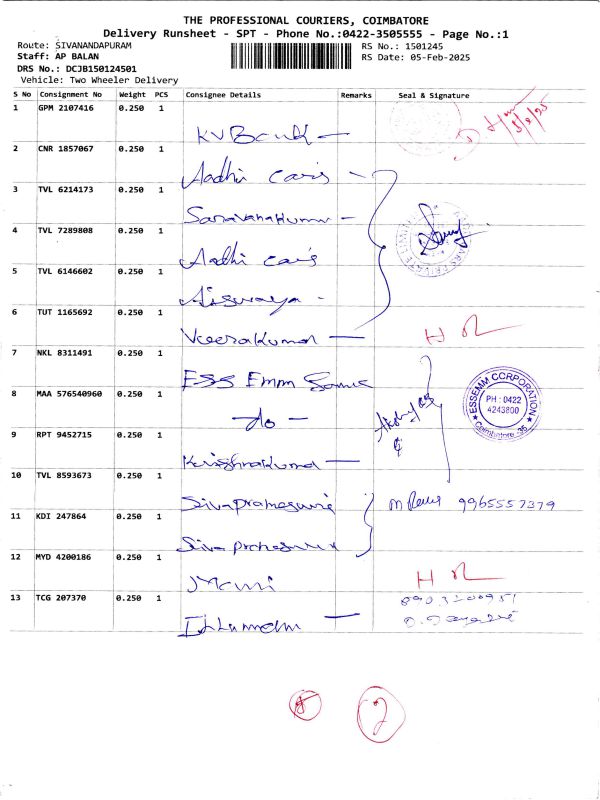 THE PROFESSIONAL COURIERS, COIMBATORE
Delivery Runsheet - SPT - Phone No.:0422-3505555 - Page No.:1
Route: SIVANANDAPURAM RS No.: 1501245
Staff: AP BALAN RS Date: 05-Feb-2025
DRS No.: DCJB150124501
Vehicle: Two Wheeler Delivery
S No Consignment No Weight PCS Consignee Details Remarks Seal & Signature
1 GPM 2107416 0.250 1
KVBank
2 CNR 1857067 0.250 1
Aadhi Cars
3 TVL 6214173 0.250 1
Saravanakumar
4 TVL 7289808 0.250 1
Aadhi Cars
5 TVL 6146602 0.250 1
Aiswarya
6 TUT 1165692 0.250 1
Veerakumar H
7 NKL 8311491 0.250 1
ESS Emm
8 MAA 576540960 0.250 1
do
ESSEMM CORPORATION
PH : 0422
4243800
Coimbatore - 35
9 RPT 9452715 0.250 1
Krishnakumar
10 TVL 8593673 0.250 1
9965557379
11 KDI 247864 0.250 1
12 MYD 4200186 0.250 1
Mani H
13 TCG 207370 0.250 1
2